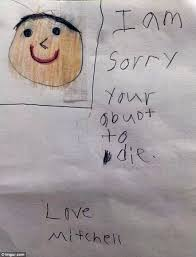 I am
Sorry
Your
abuot
to
die.
Love
Mitchell
© Imgur.com